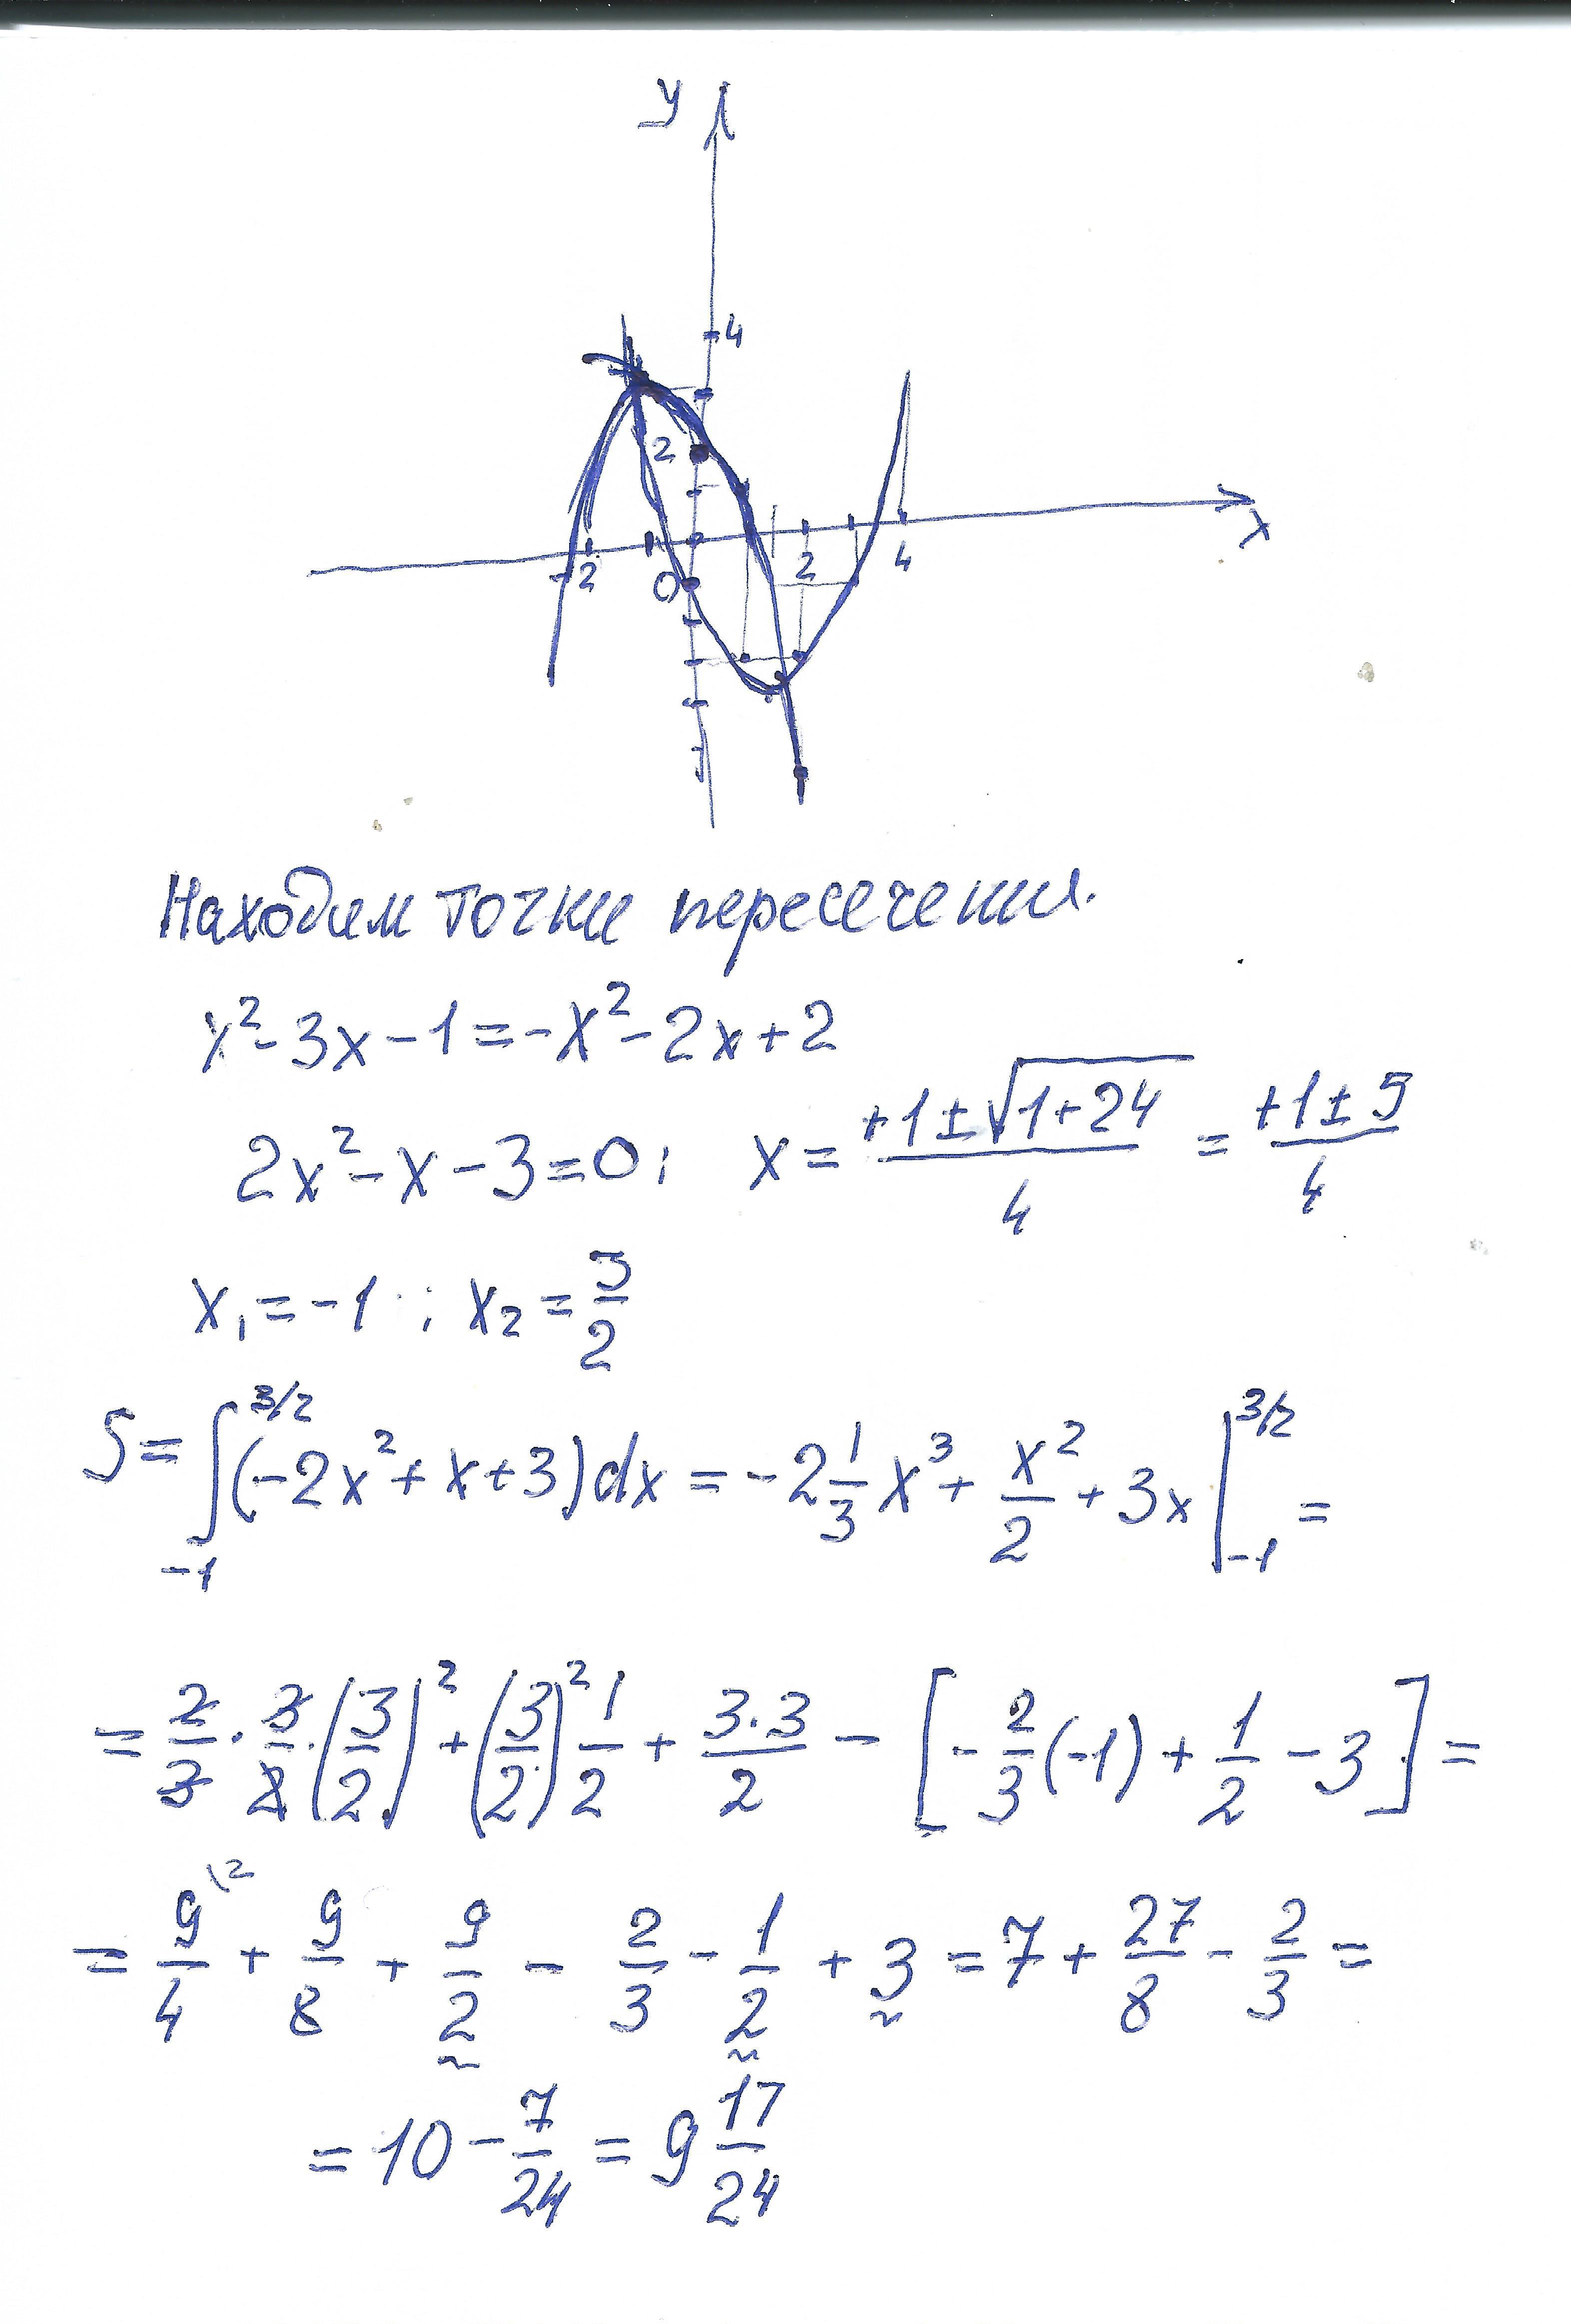 y
4
2
-2 0 2 4 x
Находим точки пересечения.
x² - 3x - 1 = -x² - 2x + 2
2x² - x - 3 = 0; x = (+1 ± √(1+24))/4 = (+1 ± 5)/4
x₁ = -1; x₂ = 3/2
S = ∫₋₁^(3/2) (-2x² + x + 3)dx = -2 1/3 x³ + x²/2 + 3x |₋₁^(3/2) =
= 2/3 · 3/2 · (3/2)² + (3/2)² 1/2 + 3·3/2 - [-2/3(-1) + 1/2 - 3] =
= 9/4 \2 + 9/8 + 9/2 - 2/3 - 1/2 + 3 = 7 + 27/8 - 2/3 =
= 10 - 7/24 = 9 17/24